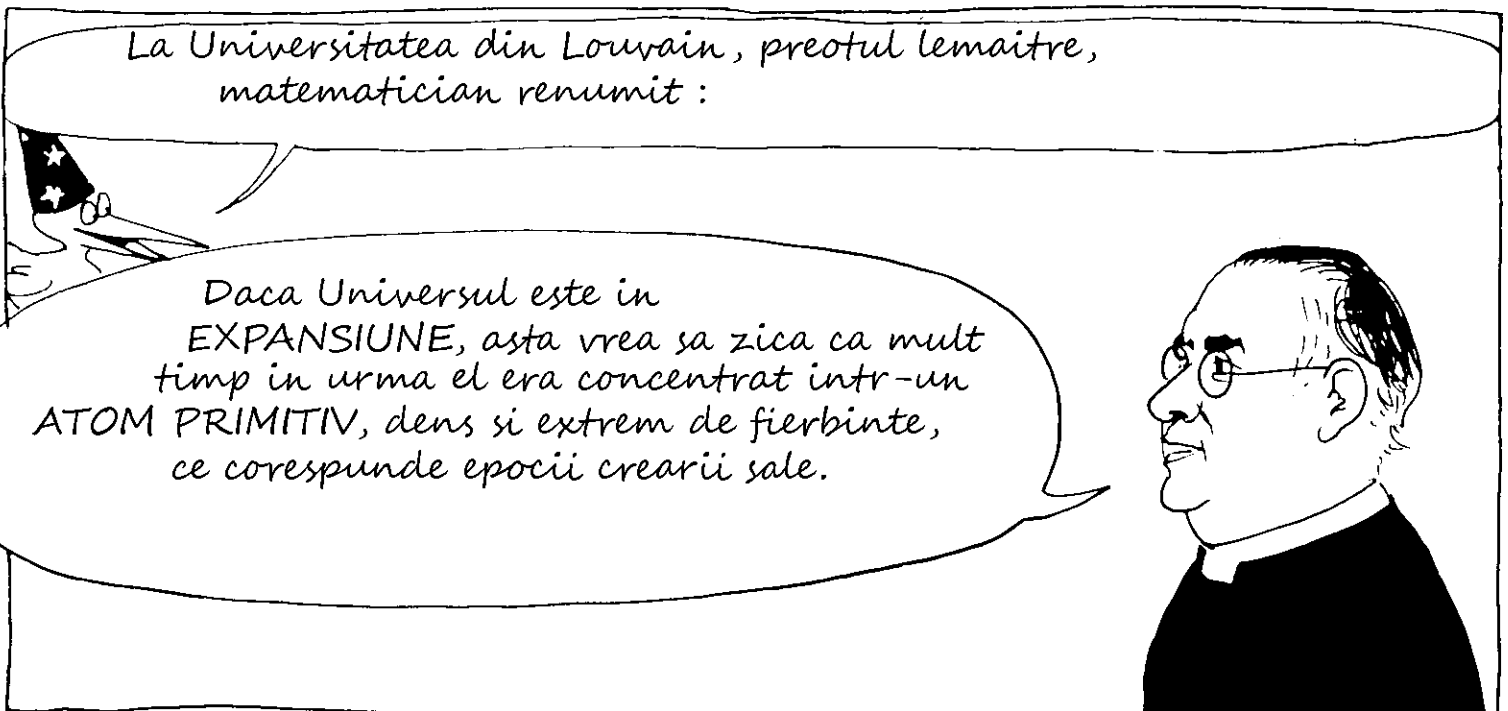 La Universitatea din Louvain, preotul lemaitre,
matematician renumit :
Daca Universul este in
EXPANSIUNE, asta vrea sa zica ca mult
timp in urma el era concentrat intr-un
ATOM PRIMITIV, dens si extrem de fierbinte,
ce corespunde epocii crearii sale.